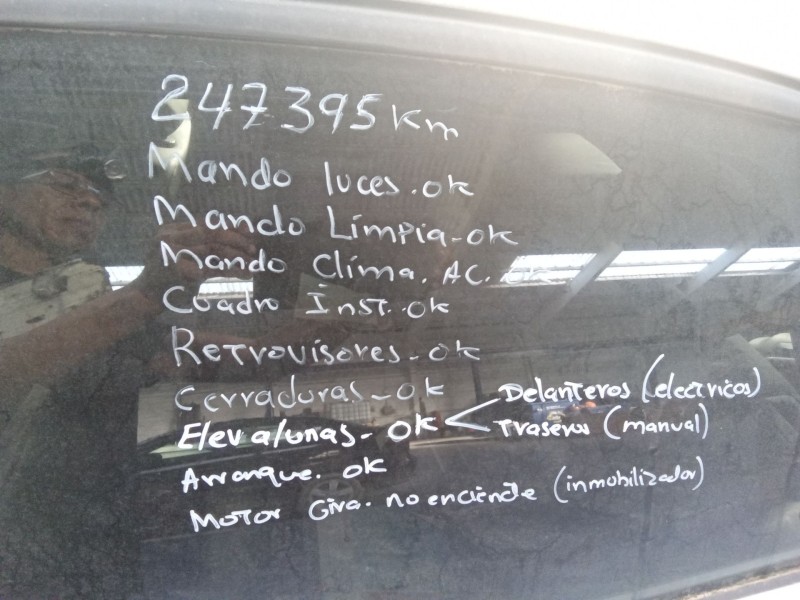 247395 Km
Mando luces. ok
Mando Límpia - ok
Mando Clíma. AC. ok
Cuadro Inst. ok
Retrovisores - ok
Cerraduras - ok
Elevalunas - ok < Delanteros (electricos)
Traseros (manual)
Arranque. ok
Motor Gira. no enciende (inmobilizador)